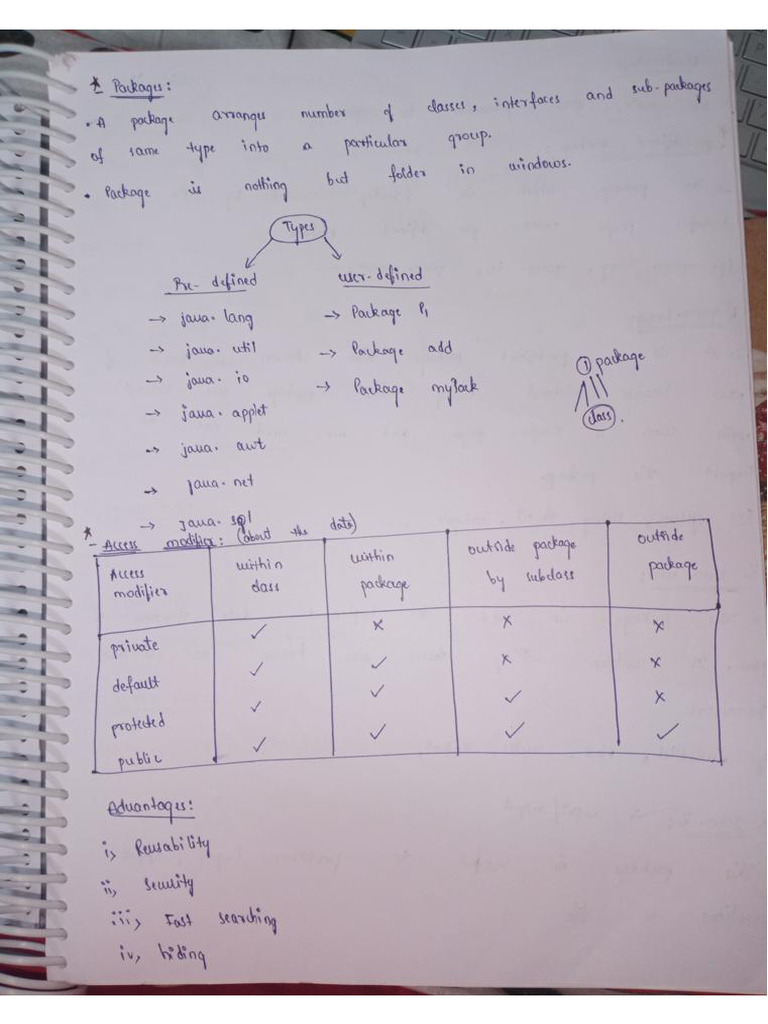 * Packages:
• A package arranges number of classes, interfaces and sub-packages
of same type into a particular group.
• Package is nothing but folder in windows.
Types
Pre-defined
user-defined
→ java.lang
→ Package P1
→ java.util
→ Package add
① package
→ java.io
→ Package myPack
class.
→ java.applet
→ java.awt
→ java.net
→ java.sql
* Access modifier: (about the data)
Access modifier
within class
within package
outside package by subclass
outside package
private ✓ × × ×
default ✓ ✓ × ×
protected ✓ ✓ ✓ ×
public ✓ ✓ ✓ ✓
Advantages:
i, Reusability
ii, Security
iii, Fast searching
iv, hiding